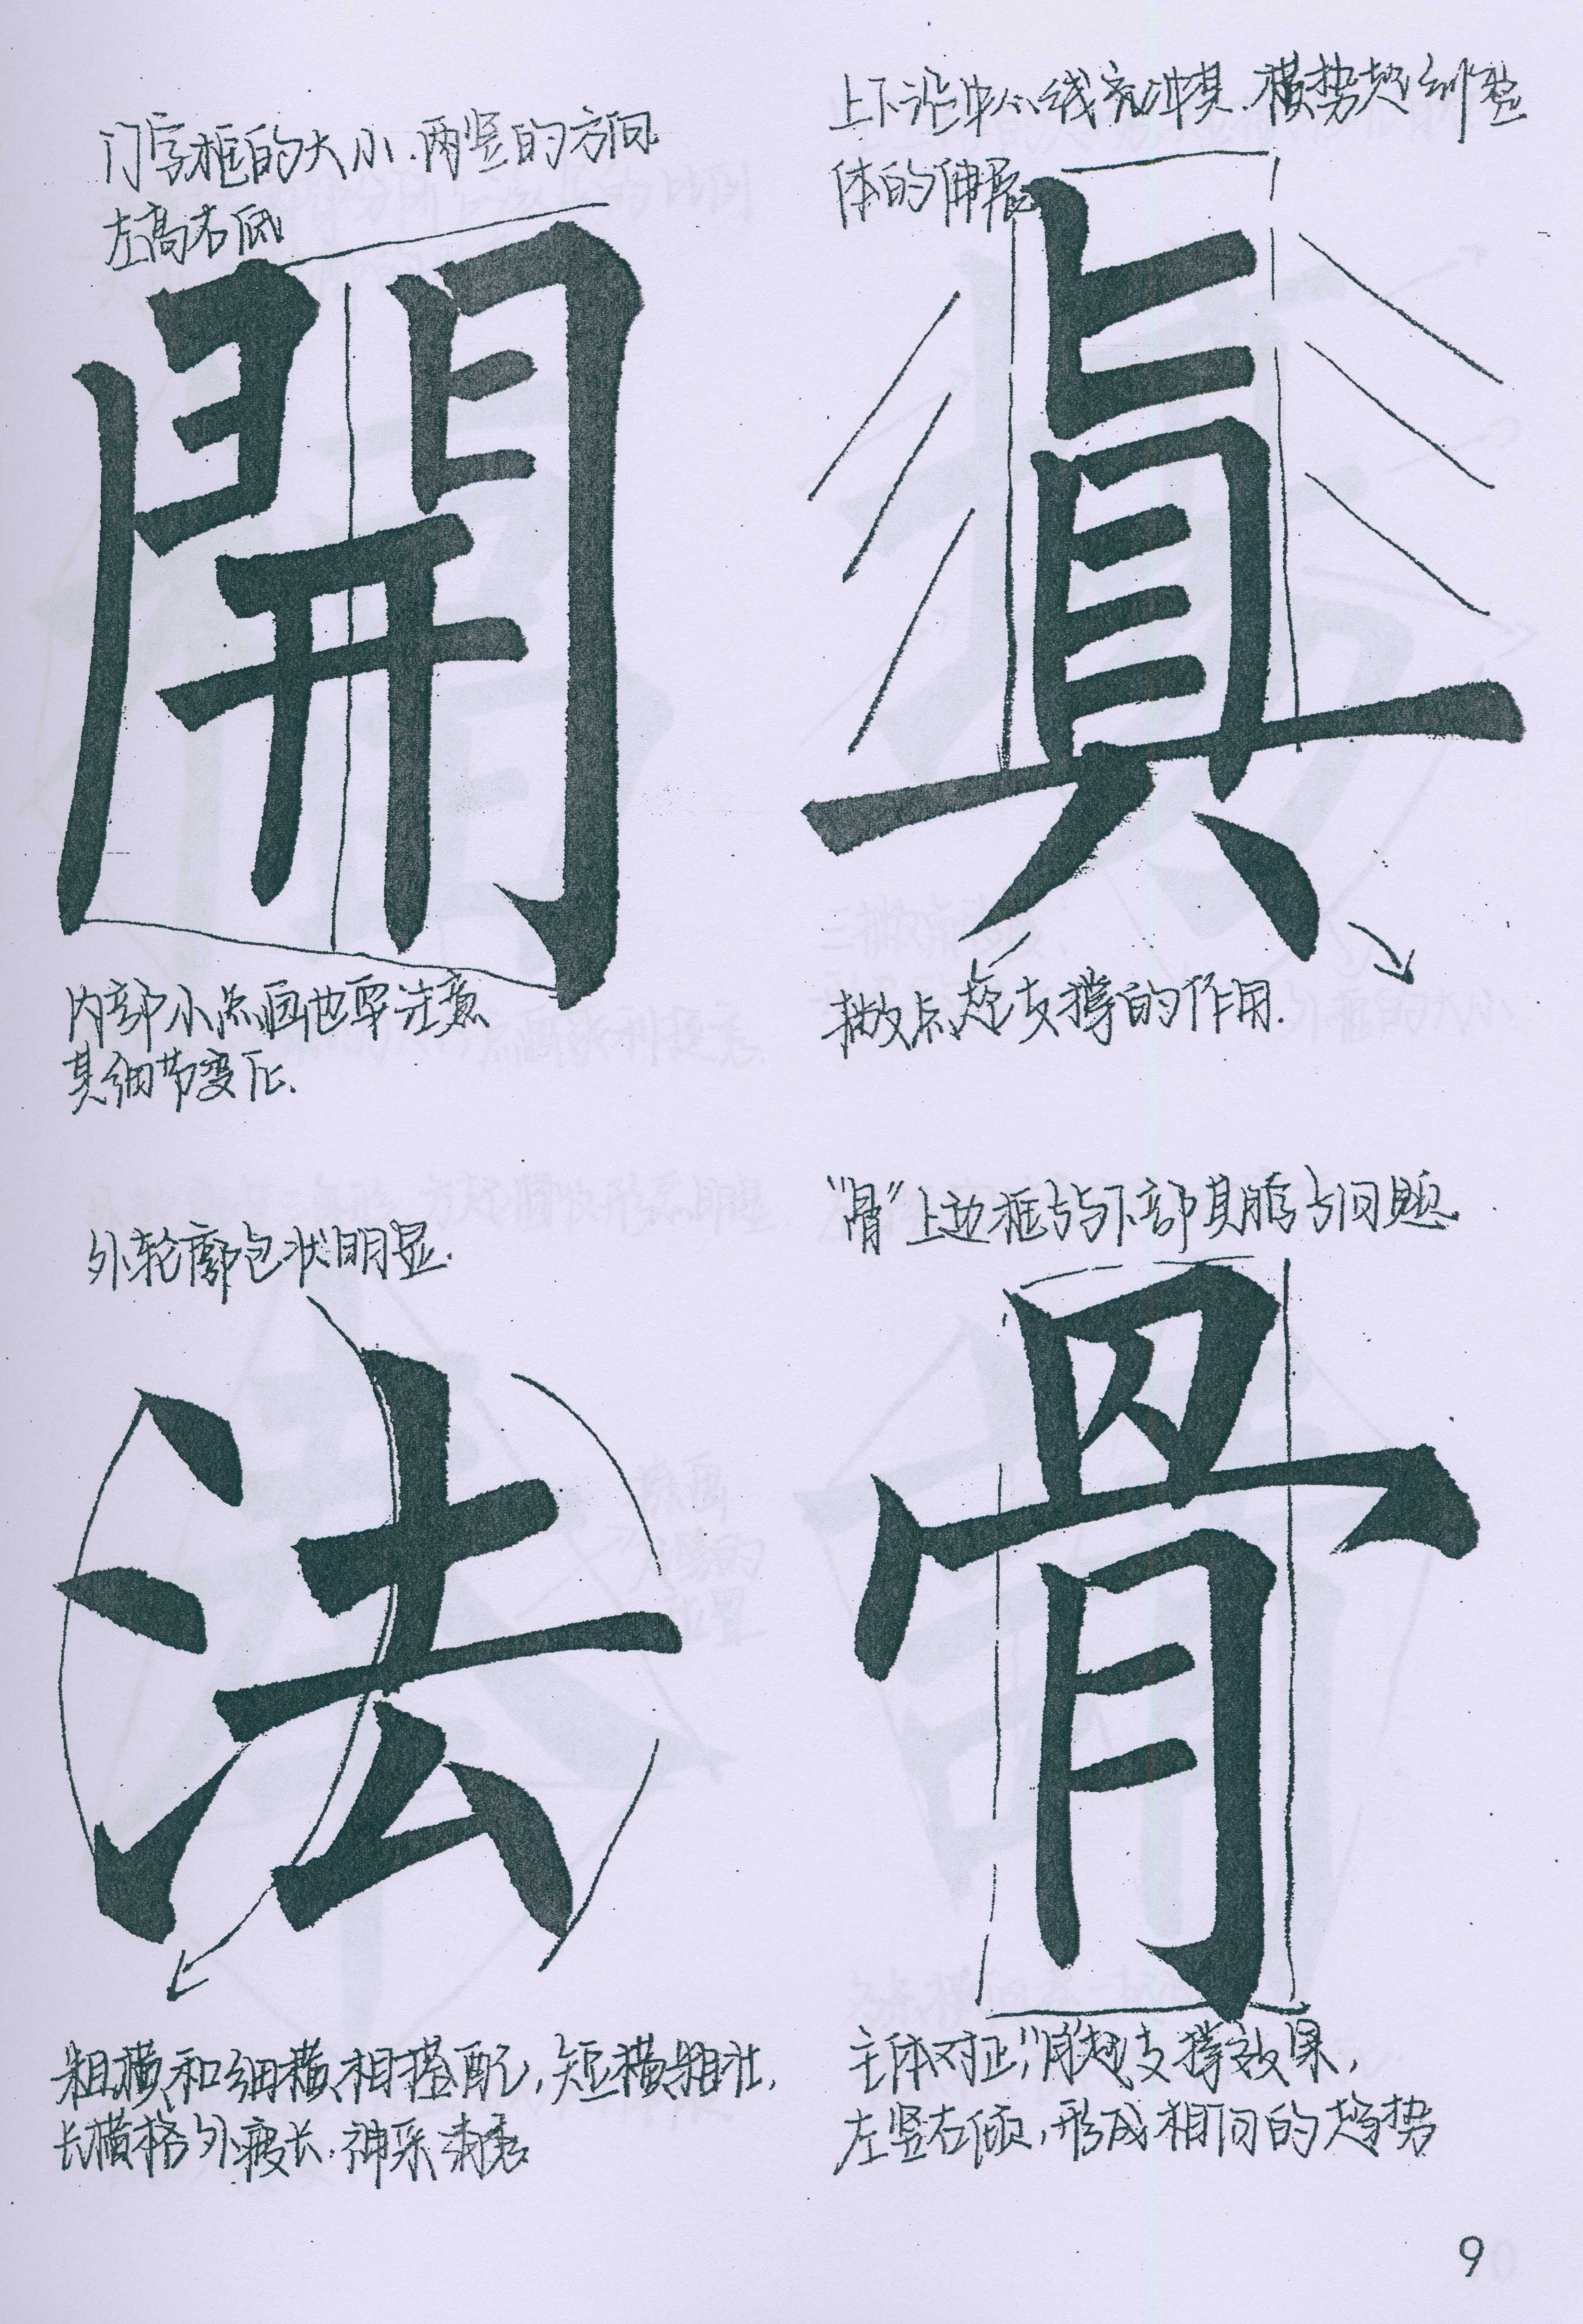 门字框的大小.两竖的方向
左高右低
開
内部小点画也要注意
其细节变化.
上下沿中心线先冲其.横势起到整
体的伸展
真
撇点起支撑的作用.
外轮廓包状明显.
法
粗横和细横相搭配,短横粗壮,
长横格外瘦长.神采清秀
"骨"上边框与下部其
骨
主体对正,"月"起支撑效果,
左竖右倾,形成相同的趋势
9